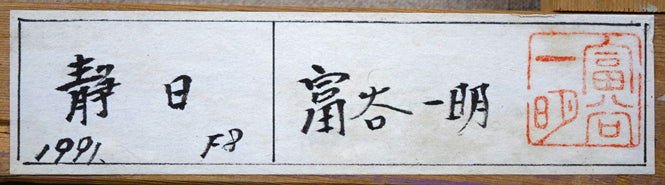 靜日
1991. F8
富谷一明
富谷一明